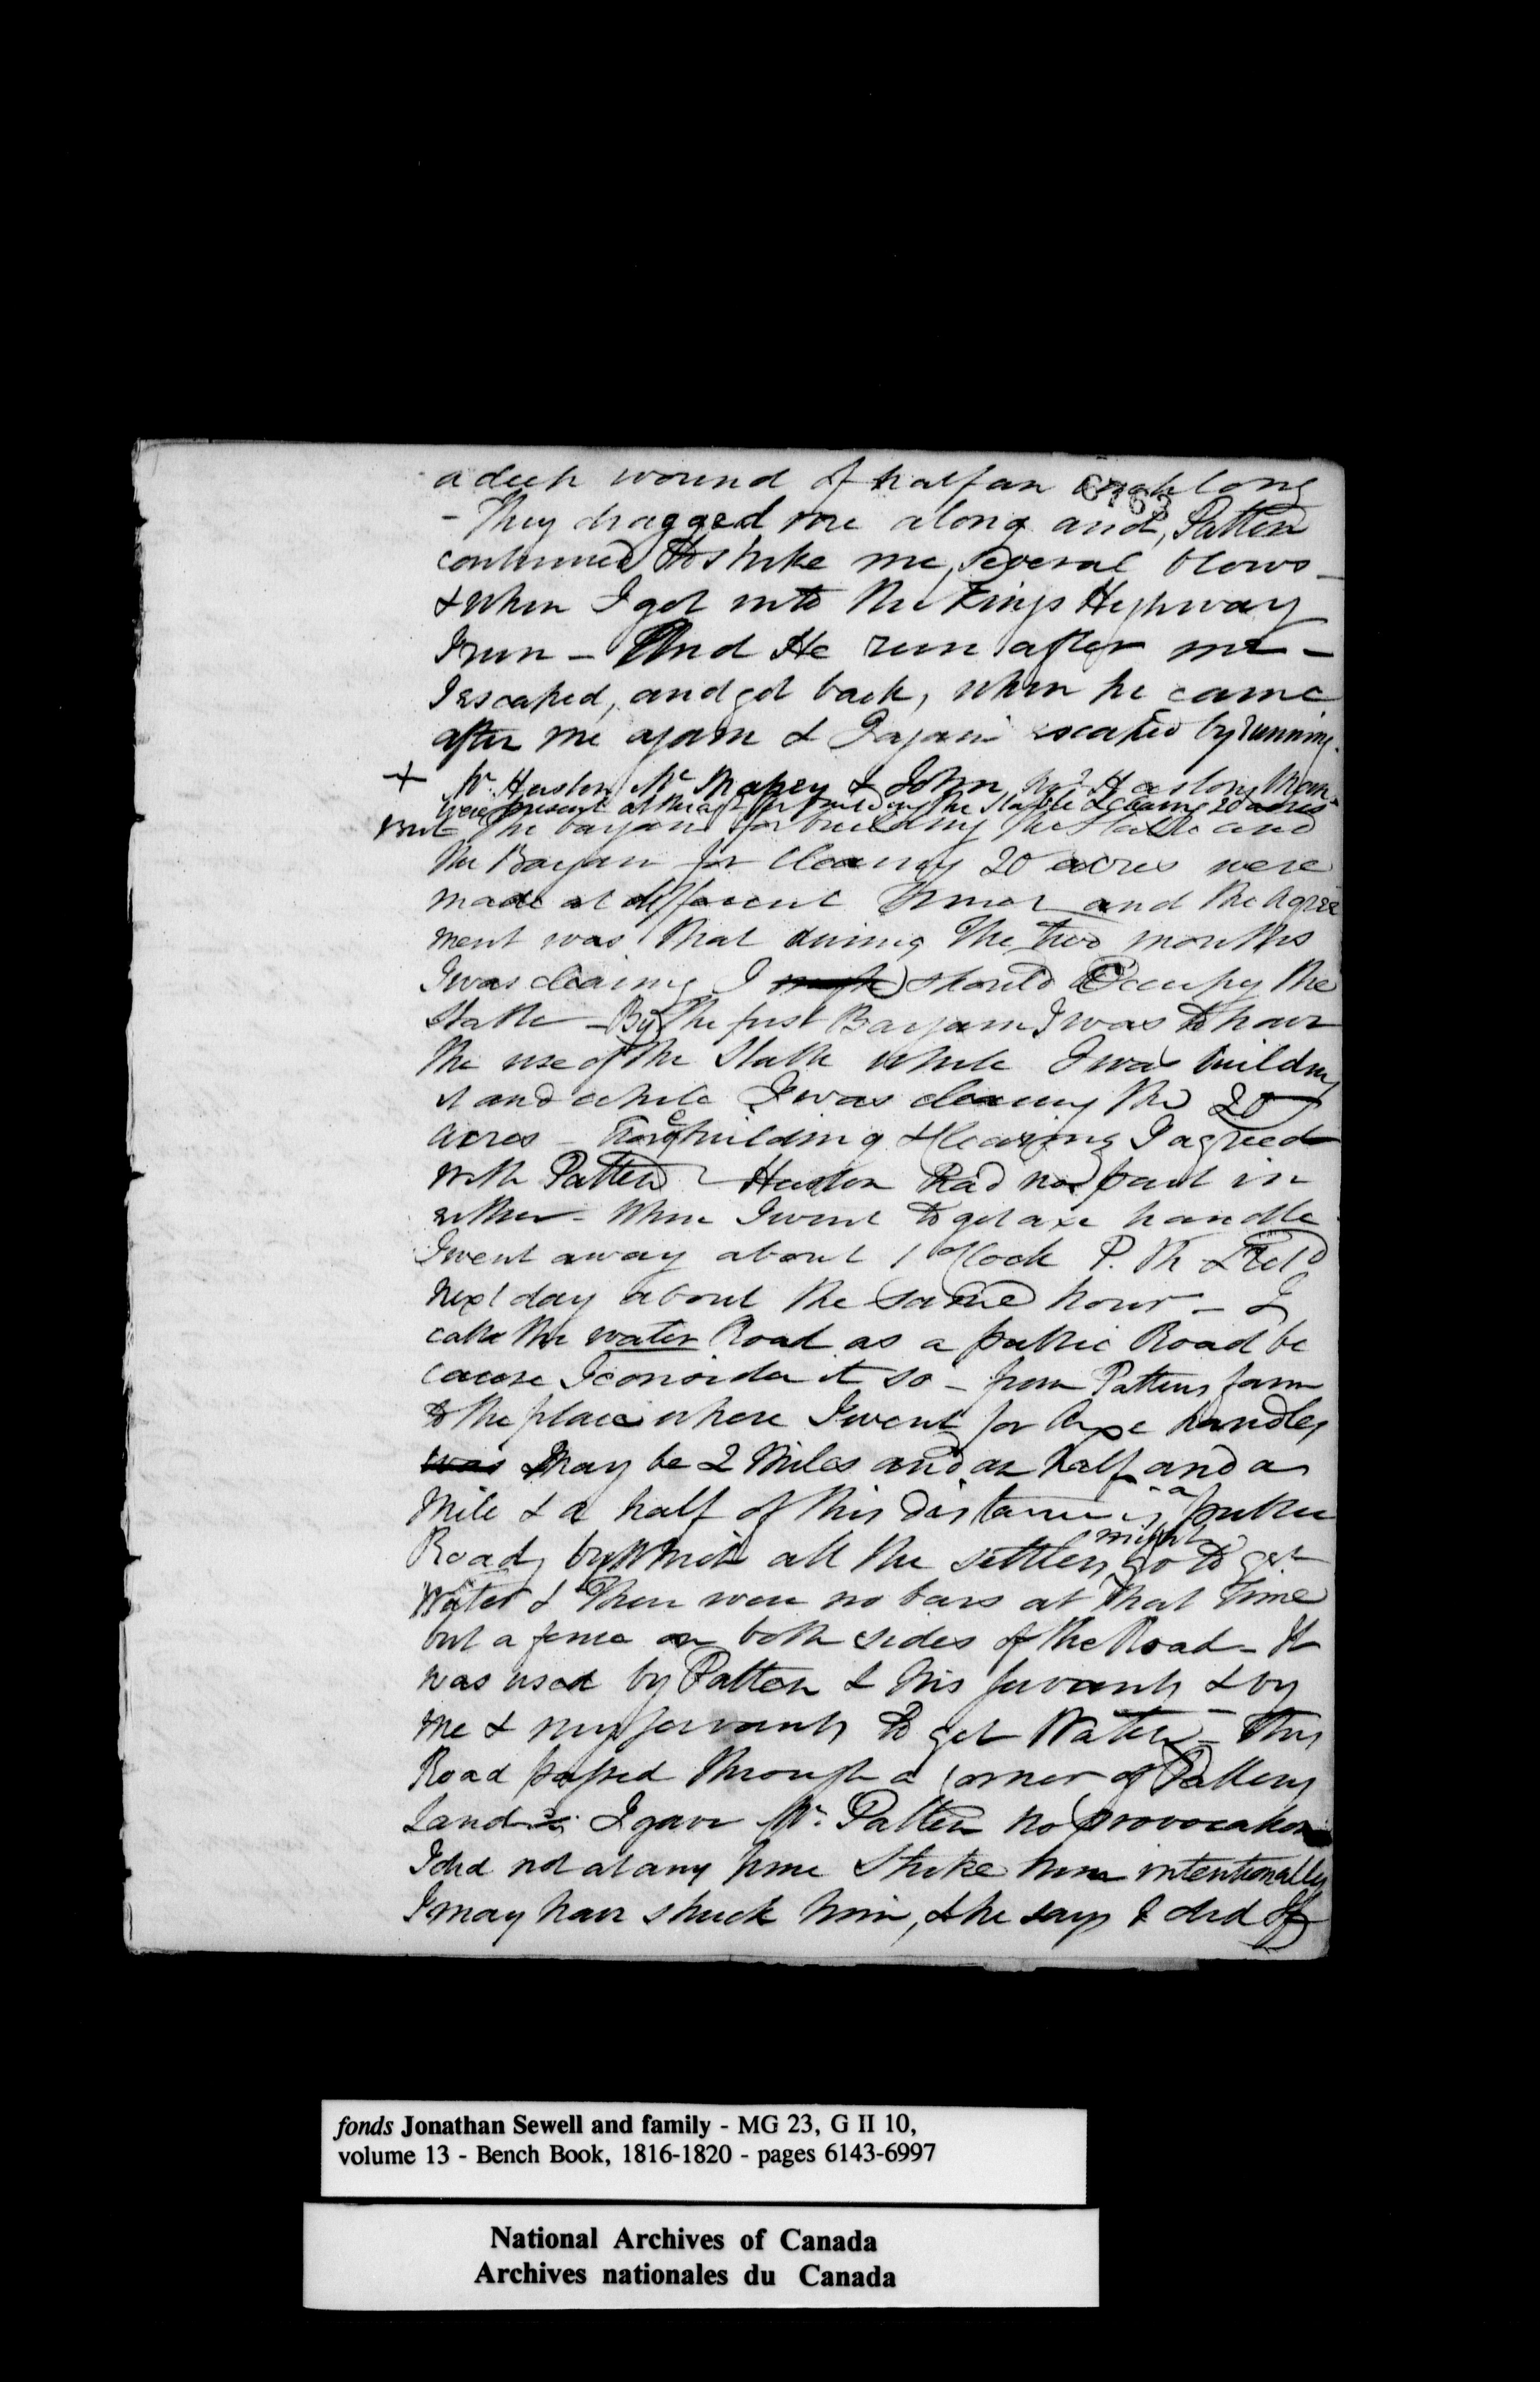 a deep wound of half an inch long
6763
- They dragged me along and, Patten
continued to strike me, several blows -
& when I got into the Kings Highway
I run - And He run after me -
I escaped, and got back, when he came
after me again & I again escaped by running.
+ Mr. Huston, Mc & John Hustons Man
were present at the agt for building the Stable & clearing 20 acres
But The bargain for building the Stable and
the Bargain for Clearing 20 acres were
made at different times and the Agree
ment was that during the two months
I was clearing I should Occupy the
Stable - By the first Bargain I was to have
the use of the Stable while I was building
it and while I was clearing the 20
acres - building & Clearing I agreed
with Patten - Huston had no part in
either - When I went to get axe handle
I went away about 1 oClock P. M & Retd
next day about the same hour - I
call the water Road as a public Road be
cause I consider it so - from Pattens farm
to the place where I went for Axe handles
was may be 2 Miles and an half and a
Mile & a half of this distance is a public
Road, by which all the settlers might go to get
Water & There were no bars at that time
but a fence on both sides of the Road - It
was used by Patten & his servants & by
me & my servants to get Water - This
Road passed through a corner of Pattens
Land - I gave Mr. Patten no provocation
I did not at any time Strike him intentionally
I may have struck him, & he says I did If
fonds Jonathan Sewell and family - MG 23, G II 10,
volume 13 - Bench Book, 1816-1820 - pages 6143-6997
National Archives of Canada
Archives nationales du Canada